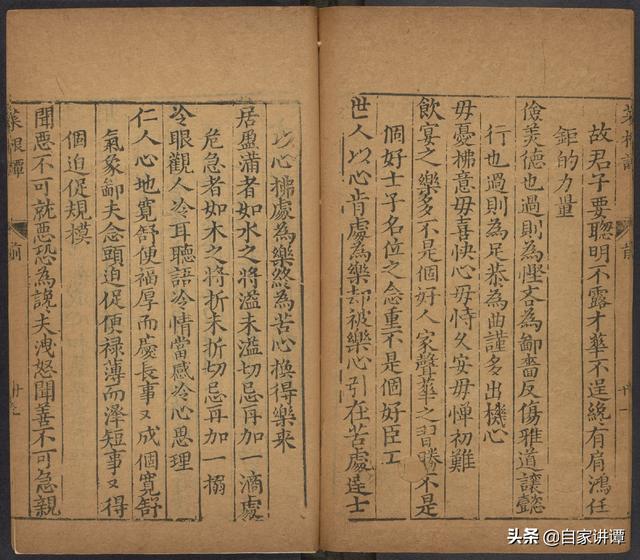 故君子要聰明不露才華不逞纔有肩鴻任
鉅的力量
儉美德也過則為慳吝為鄙嗇反傷雅道讓懿
行也過則為足恭為曲謹多出機心
毋憂拂意毋喜快心毋恃久安毋憚初難
飲宴之樂多不是個好人家聲華之習勝不是
個好士子名位之念重不是個好臣工
世人以心肯處為樂却被樂心引在苦處達士
以心拂處為樂終為苦心換得樂來
居盈滿者如水之將溢未溢切忌再加一滴處
危急者如木之將折未折切忌再加一搦
冷眼觀人冷耳聽語冷情當感冷心思理
仁人心地寬舒便福厚而慶長事又成個寬舒
氣象鄙夫念頭迫促便祿薄而澤短事又得
個迫促規模
聞惡不可就惡恐為讒夫洩怒聞善不可急親
菜根譚
前
头条 @自家讲谭